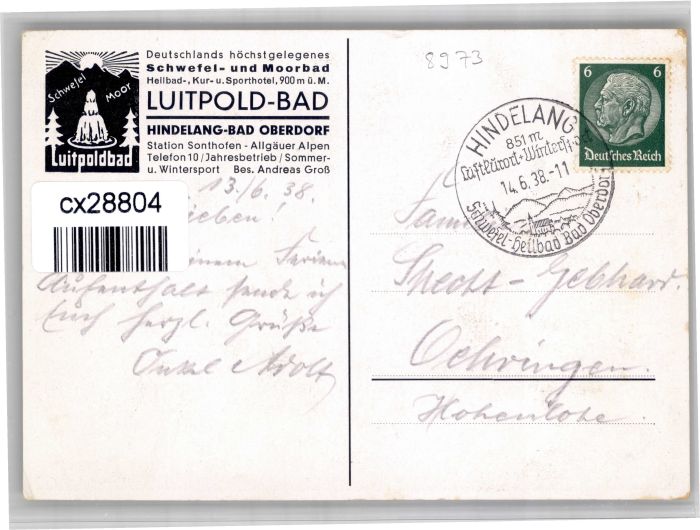 Deutschlands höchstgelegenes
Schwefel- und Moorbad
Heilbad-, Kur- u. Sporthotel, 900 m ü. M.
LUITPOLD-BAD
HINDELANG-BAD OBERDORF
Station Sonthofen - Allgäuer Alpen
Telefon 10 / Jahresbetrieb / Sommer-
u. Wintersport Bes. Andreas Groß
Schwefel Moor
Luitpoldbad
8973
6 6
Deutsches Reich
HINDELANG
851 m
Luftkurort-Wintersport
14.6.38-11
Schwefel-Heilbad Bad Oberdorf
cx28804
13./6. 38.
ieben!
einem Ferien
Aufenthalt sende ich
Euch herzl. Grüße
Onkel Adolf
Fam
Specht-Gebhard.
Oehringen.
Hohenlohe.